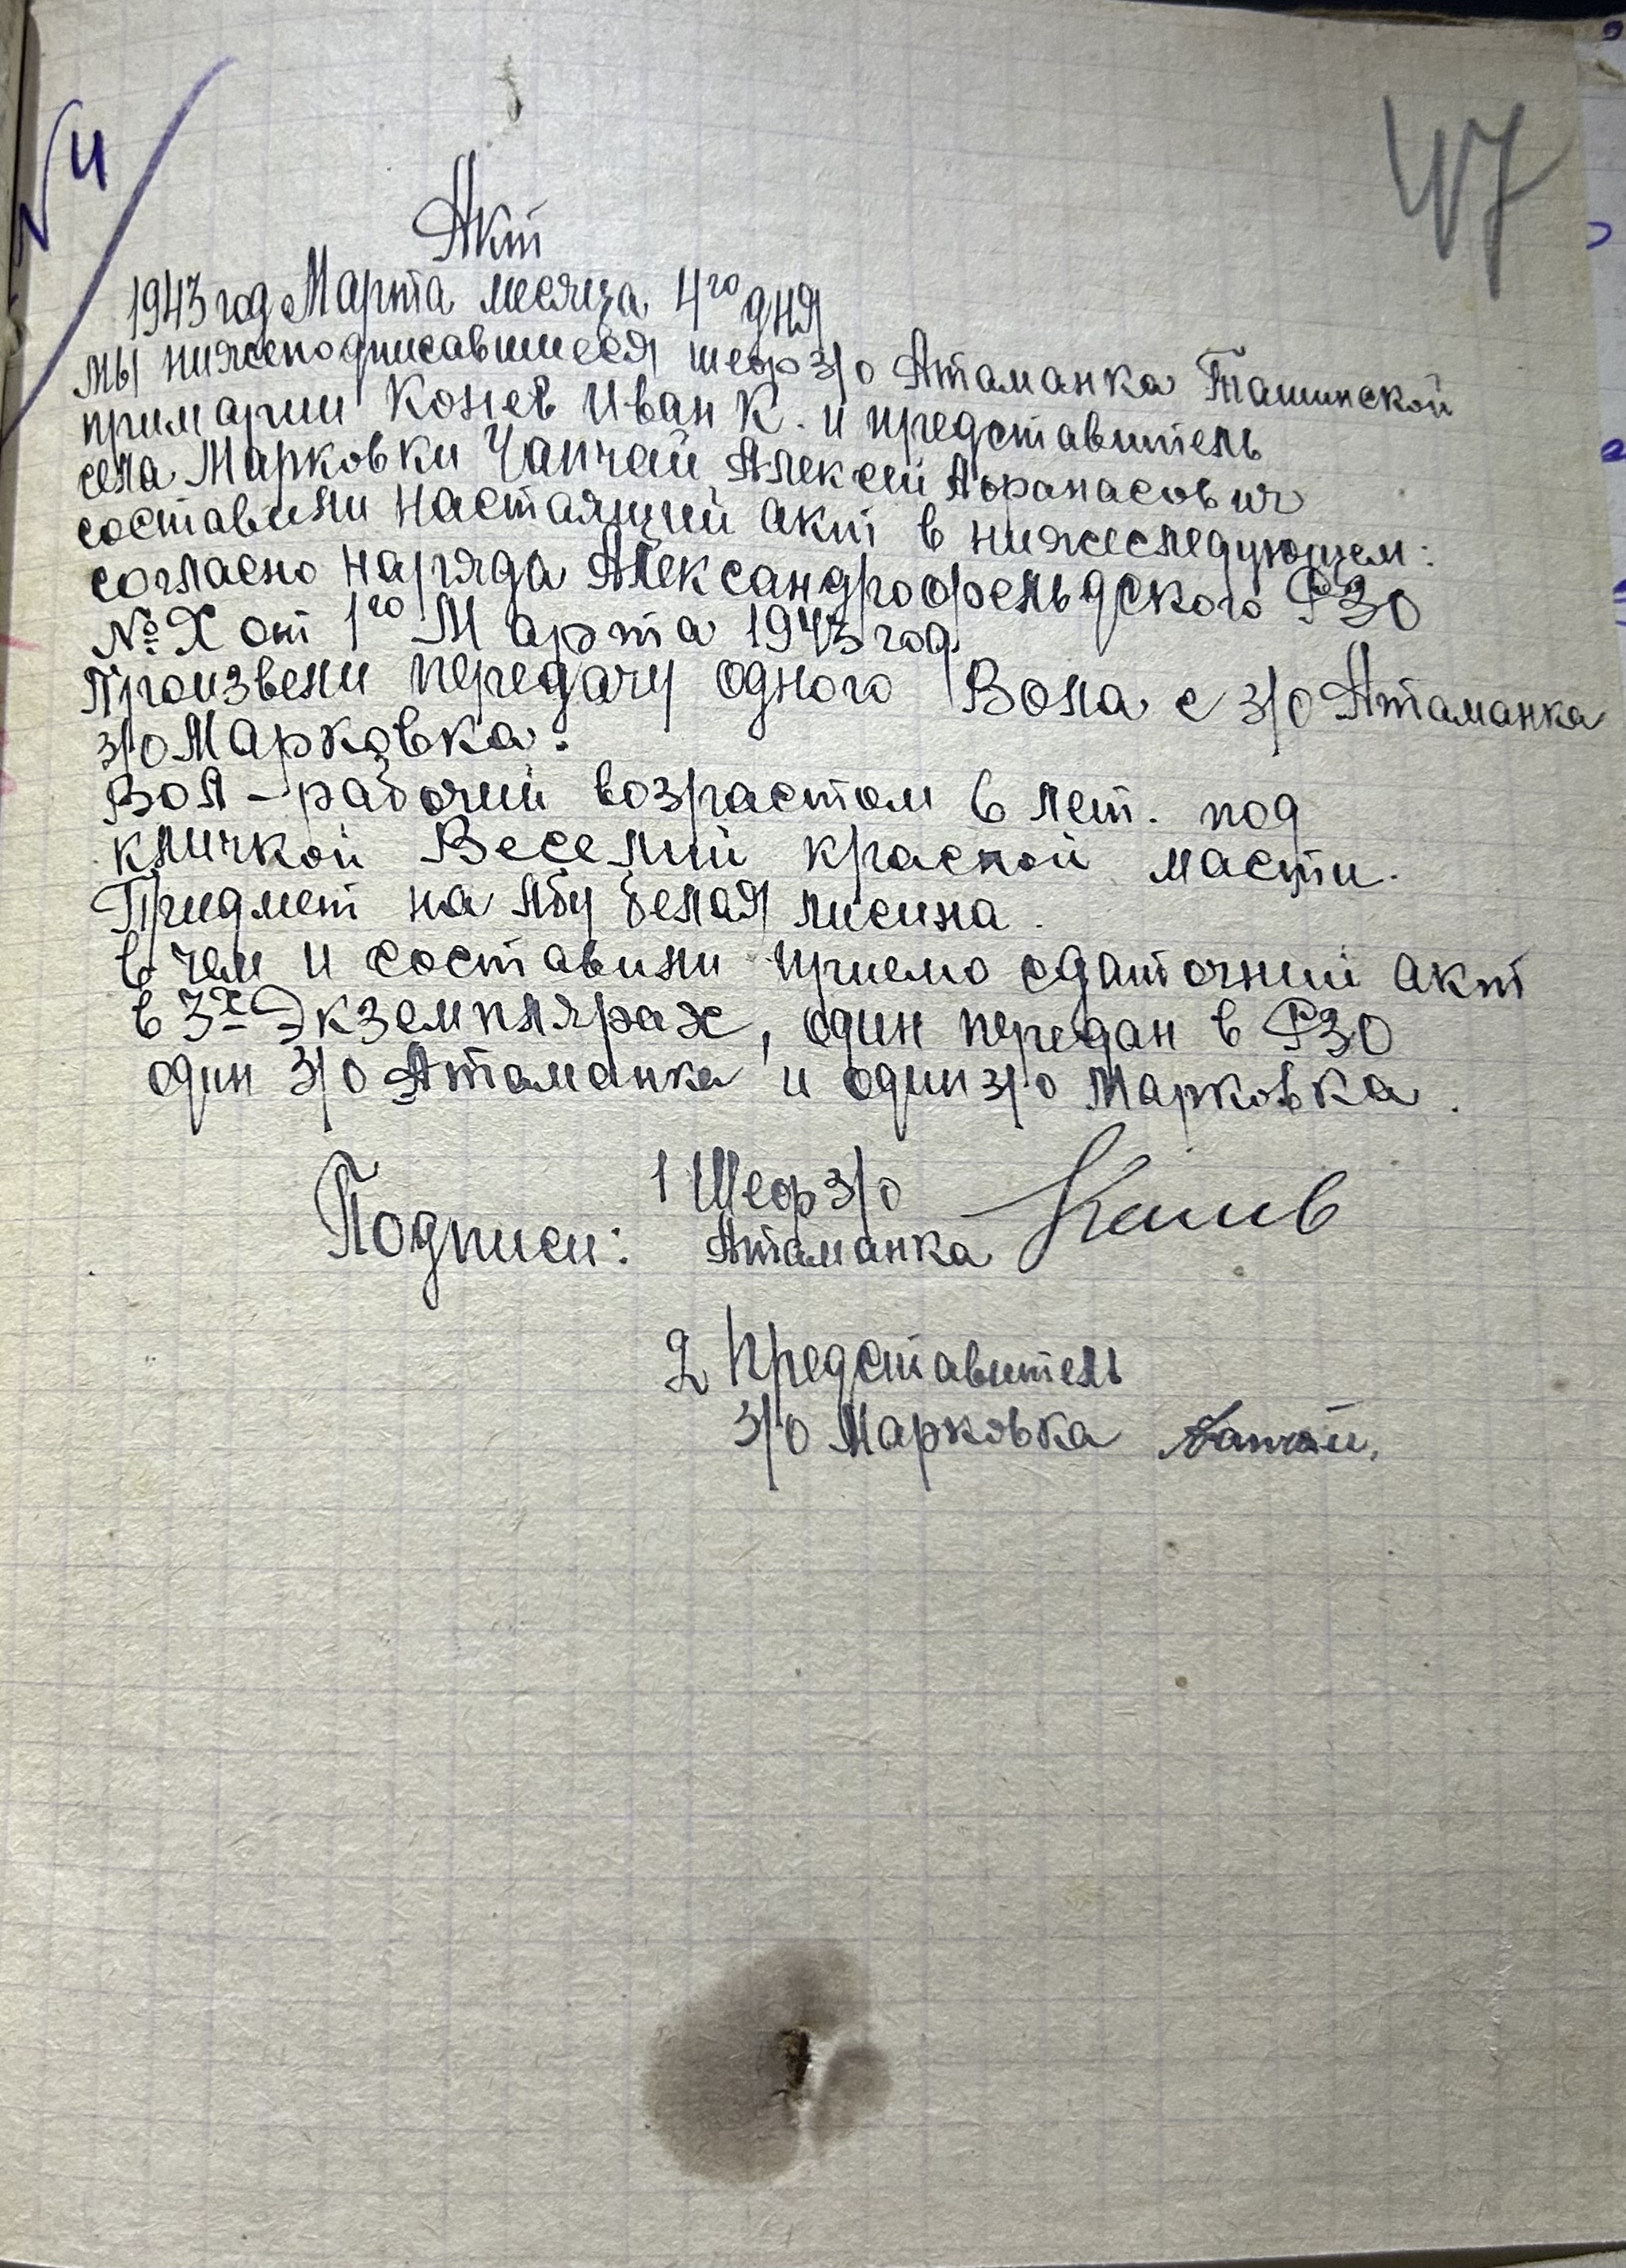 № 4
47
Акт
1943 год Марта месяца 4го дня
мы нижеподписавшиеся шеф з/о Атаманка Ташинской
примарии Конев Иван К. и представитель
села Марковки Чапчай Алексей Афанасович
составили настаящий акт в нижеследующем:
согласно наряда Александрофельдского РЗО
№ X от 1го Марта 1943 год
Произвели передачу одного Вола с з/о Атаманка
з/о Марковка.
Вол – рабочий возрастом 6 лет. под
кличкой Веселий красной масти.
Придмет на лбу белая лисина.
в чем и составили приемо сдаточний акт
в 3х Экземплярах, один передан в РЗО
один з/о Атаманка и один з/о Марковка.
Подписи: 1 Шеф з/о
Атаманка
2 Представитель
з/о Марковка